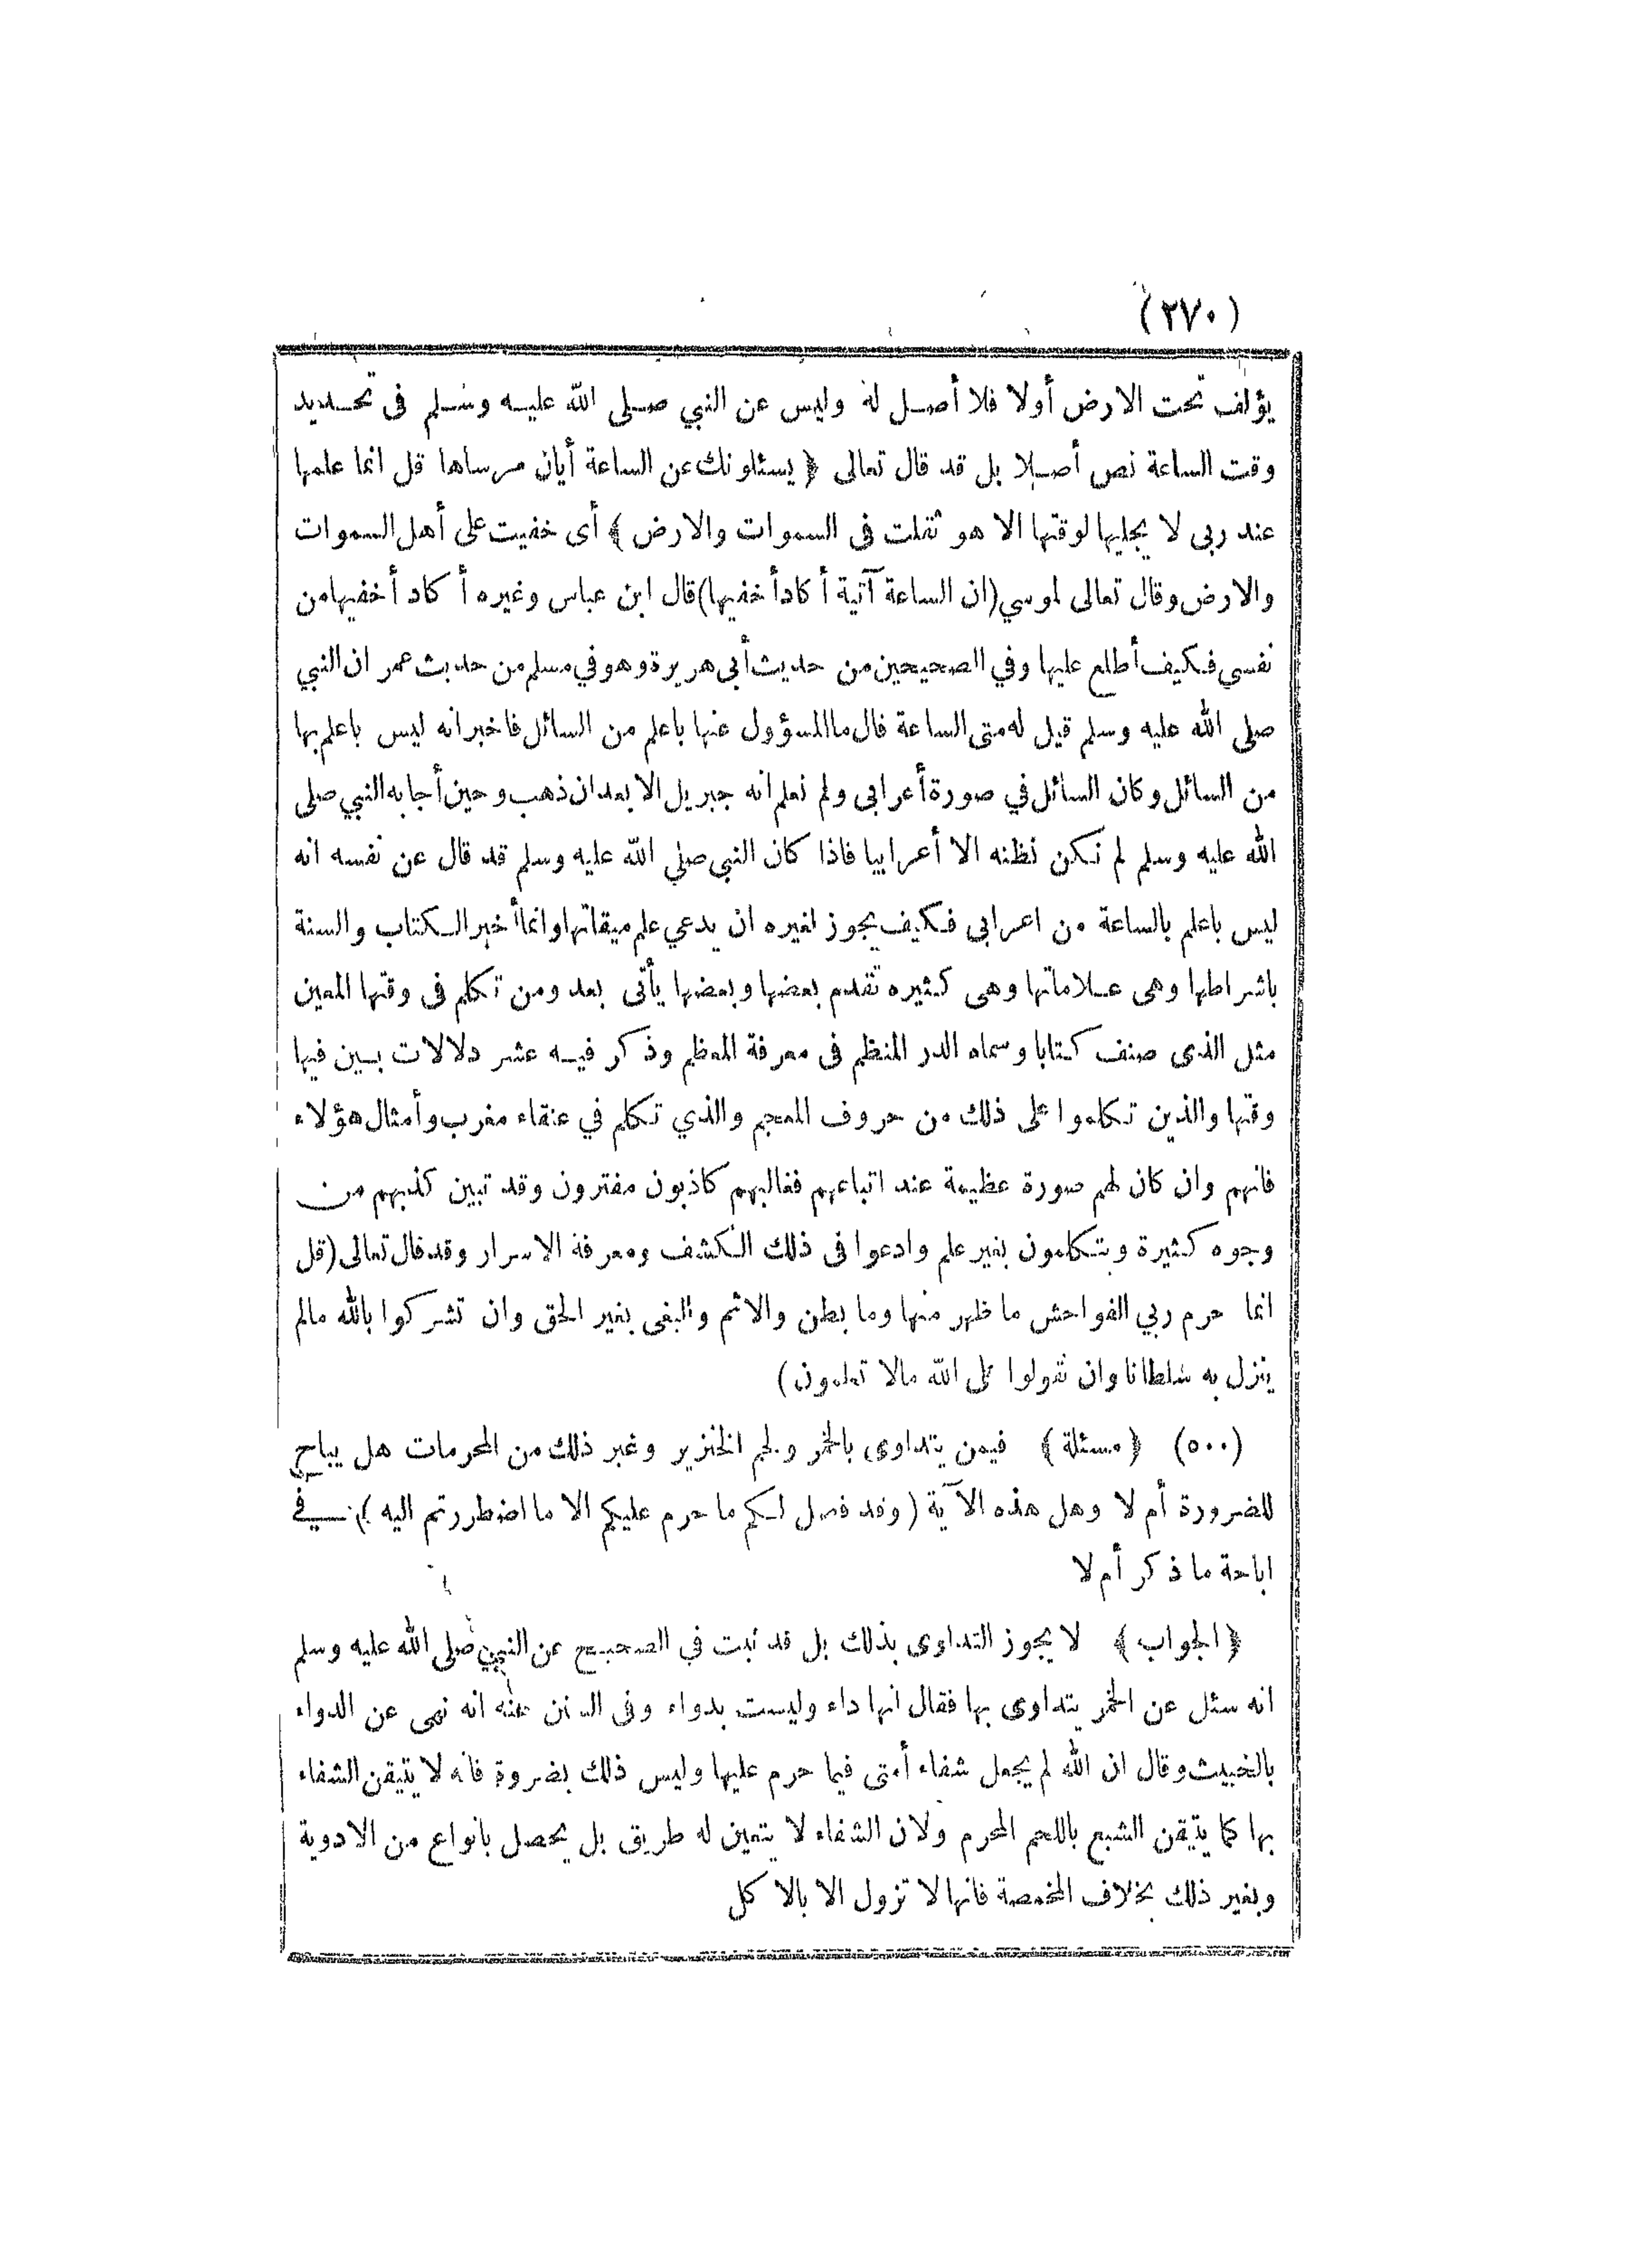 (٢٧٠)
يؤلف تحت الارض أولا فلا أصل له وليس عن النبي صلى الله عليه وسلم فى تحديد
وقت الساعة نص أصلا بل قد قال تعالى ﴿ يسئلونك عن الساعة أيان مرساها قل انما علمها
عند ربى لا يجليها لوقتها الا هو ثقلت فى السموات والارض ﴾ أى خفيت على أهل السموات
والارض وقال تعالى لموسي (ان الساعة آتية أكاد أخفيها) قال ابن عباس وغيره أكاد أخفيها من
نفسي فكيف أطلع عليها وفي الصحيحين من حديث أبى هريرة وهو في مسلم من حديث عمر ان النبي
صلى الله عليه وسلم قيل له متى الساعة قال ما المسؤول عنها باعلم من السائل فاخبر انه ليس باعلم بها
من السائل وكان السائل في صورة أعرابى ولم نعلم انه جبريل الا بعد ان ذهب وحين أجابه النبي صلى
الله عليه وسلم لم نكن نظنه الا أعرابيا فاذا كان النبى صلي الله عليه وسلم قد قال عن نفسه انه
ليس باعلم بالساعة من اعرابى فكيف يجوز لغيره ان يدعي علم ميقاتها وانما أخبر الكتاب والسنة
باشراطها وهى علاماتها وهى كثيره تقدم بعضها وبعضها يأتى بعد ومن تكلم فى وقتها المعين
مثل الذى صنف كتابا وسماه الدر المنظم فى معرفة المعظم وذكر فيه عشر دلالات بين فيها
وقتها والذين تكلموا على ذلك من حروف المعجم والذي تكلم في عنقاء مغرب وأمثال هؤلاء
فانهم وان كان لهم صورة عظيمة عند اتباعهم فغالبهم كاذبون مفترون وقد تبين كذبهم من
وجوه كثيرة ويتكلمون بغير علم وادعوا فى ذلك الكشف ومعرفة الاسرار وقد قال تعالى (قل
انما حرم ربي الفواحش ما ظهر منها وما بطن والاثم والبغى بغير الحق وان تشركوا بالله مالم
ينزل به سلطانا وان تقولوا على الله مالا تعلمون)
(٥٠٠) ﴿ مسئلة ﴾ فيمن يتداوى بالخمر ولحم الخنزير وغير ذلك من المحرمات هل يباح
للضرورة أم لا وهل هذه الآية (وقد فصل لكم ما حرم عليكم الا ما اضطررتم اليه ) في
اباحة ما ذكر أم لا
﴿ الجواب ﴾ لا يجوز التداوى بذلك بل قد ثبت في الصحيح عن النبي صلى الله عليه وسلم
انه سئل عن الخمر يتداوى بها فقال انها داء وليست بدواء وفى السنن عنه انه نهى عن الدواء
بالخبيث وقال ان الله لم يجعل شفاء أمتى فيما حرم عليها وليس ذلك بضرورة فانه لا يتيقن الشفاء
بها كما يتيقن الشبع باللحم المحرم ولان الشفاء لا يتعين له طريق بل يحصل بانواع من الادوية
وبغير ذلك بخلاف المخمصة فانها لا تزول الا بالا كل